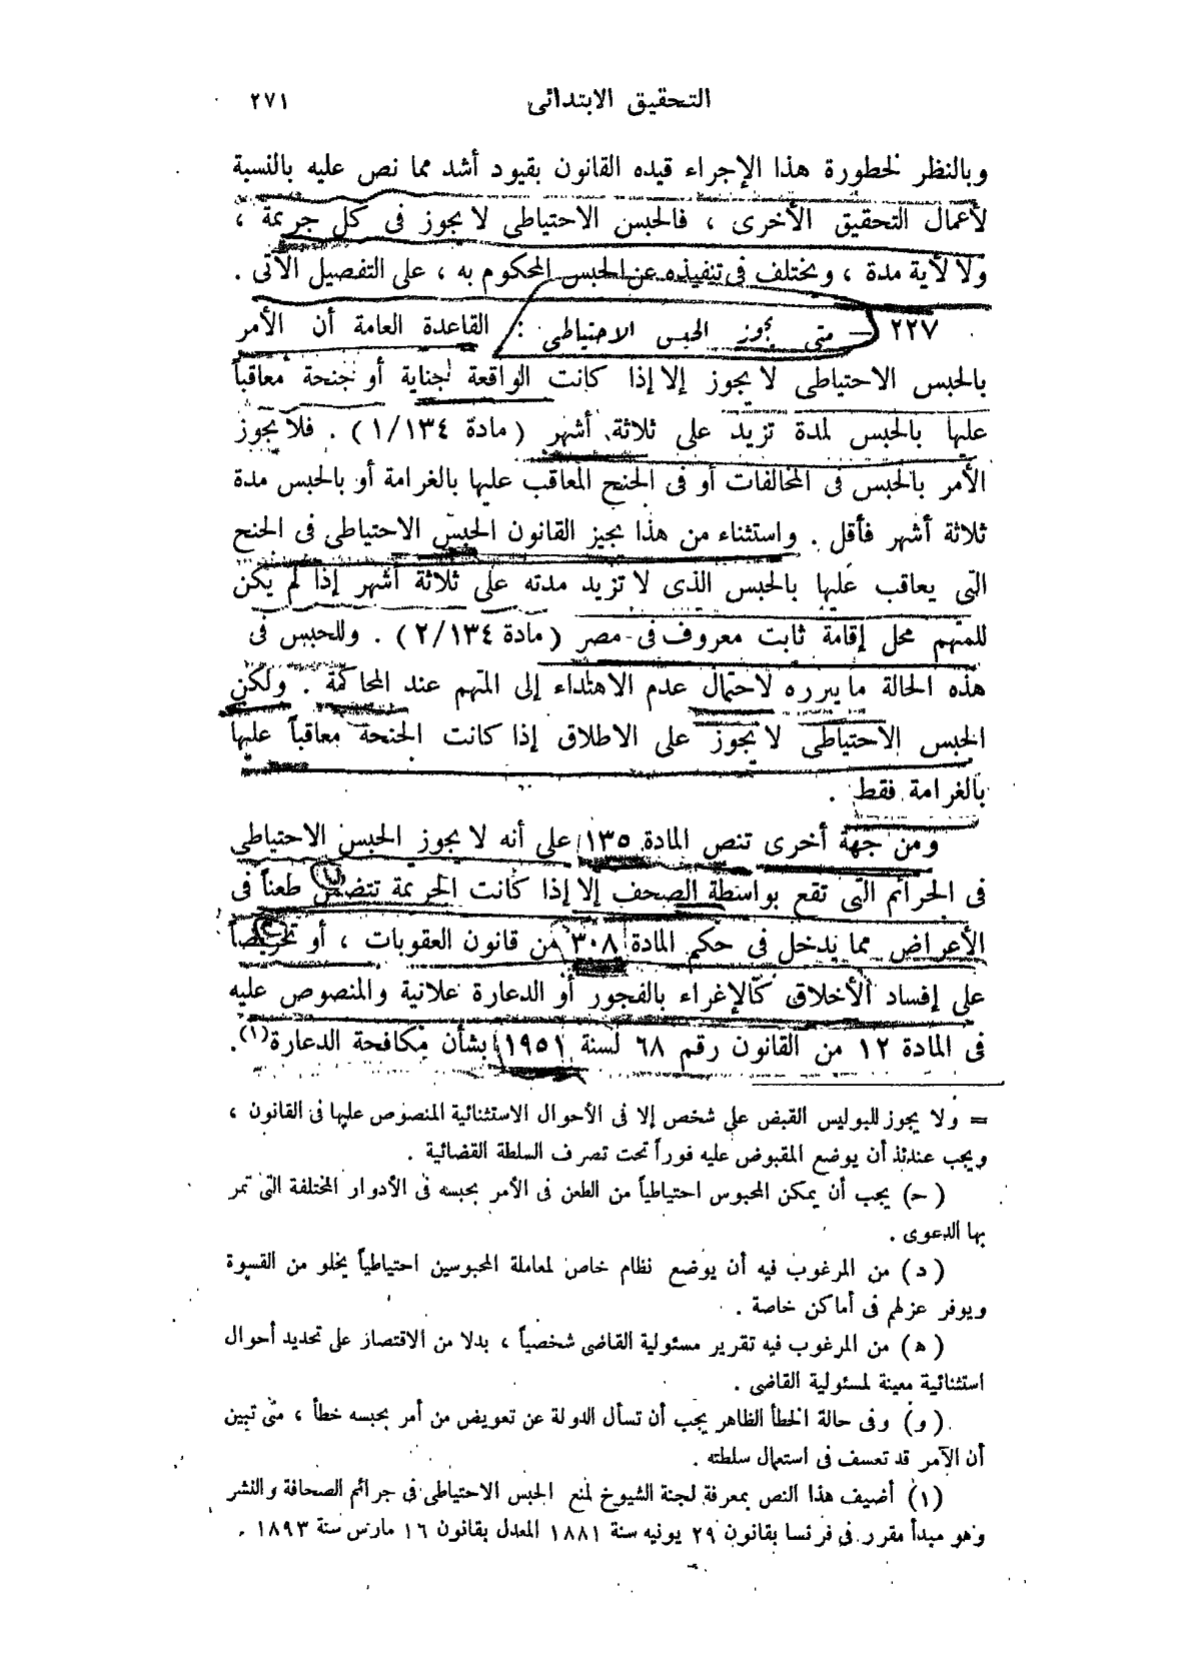 التحقيق الابتدائى ٢٧١
وبالنظر لخطورة هذا الإجراء قيده القانون بقيود أشد مما نص عليه بالنسبة
لأعمال التحقيق الأخرى ، فالحبس الاحتياطى لا يجوز فى كل جريمة ،
ولا لأية مدة ، ويختلف فى تنفيذه عن الحبس المحكوم به ، على التفصيل الآتى .
٢٢٧ — متى يجوز الحبس الاحتياطى : القاعدة العامة أن الأمر
بالحبس الاحتياطى لا يجوز إلا إذا كانت الواقعة جناية أو جنحة معاقباً
عليها بالحبس لمدة تزيد على ثلاثة أشهر ( مادة ١/١٣٤ ) . فلا يجوز
الأمر بالحبس فى المخالفات أو فى الجنح المعاقب عليها بالغرامة أو بالحبس مدة
ثلاثة أشهر فأقل . واستثناء من هذا يجيز القانون الحبس الاحتياطى فى الجنح
التى يعاقب عليها بالحبس الذى لا تزيد مدته على ثلاثة أشهر إذا لم يكن
للمتهم محل إقامة ثابت معروف فى مصر ( مادة ٢/١٣٤ ) . وللحبس فى
هذه الحالة ما يبرره لاحتمال عدم الاهتداء إلى المتهم عند المحاكمة . ولكن
الحبس الاحتياطى لا يجوز على الاطلاق إذا كانت الجنحة معاقباً عليها
بالغرامة فقط .
ومن جهة أخرى تنص المادة ١٣٥ على أنه لا يجوز الحبس الاحتياطى
فى الجرائم التى تقع بواسطة الصحف إلا إذا كانت الجريمة تتضمن طعناً فى
الأعراض مما يدخل فى حكم المادة ٣٠٨ من قانون العقوبات ، أو تحريضاً
على إفساد الأخلاق كالإغراء بالفجور أو الدعارة علانية والمنصوص عليه
فى المادة ١٢ من القانون رقم ٦٨ لسنة ١٩٥١ بشأن مكافحة الدعارة(١).
= ولا يجوز للبوليس القبض على شخص إلا فى الأحوال الاستثنائية المنصوص عليها فى القانون ،
ويجب عندئذ أن يوضع المقبوض عليه فوراً تحت تصرف السلطة القضائية .
( ح ) يجب أن يمكن المحبوس احتياطياً من الطعن فى الأمر بحبسه فى الأدوار المختلفة التى تمر
بها الدعوى .
( د ) من المرغوب فيه أن يوضع نظام خاص لمعاملة المحبوسين احتياطياً يخلو من القسوة
ويوفر عزلهم فى أماكن خاصة .
( ه ) من المرغوب فيه تقرير مسئولية القاضى شخصياً ، بدلا من الاقتصار على تحديد أحوال
استثنائية معينة لمسئولية القاضى .
( و ) وفى حالة الخطأ الظاهر يجب أن تسأل الدولة عن تعويض من أمر بحبسه خطأ ، متى تبين
أن الآمر قد تعسف فى استعمال سلطته .
(١) أضيف هذا النص بمعرفة لجنة الشيوخ لمنع الحبس الاحتياطى فى جرائم الصحافة والنشر
وهو مبدأ مقرر فى فرنسا بقانون ٢٩ يونيه سنة ١٨٨١ المعدل بقانون ١٦ مارس سنة ١٨٩٣ .